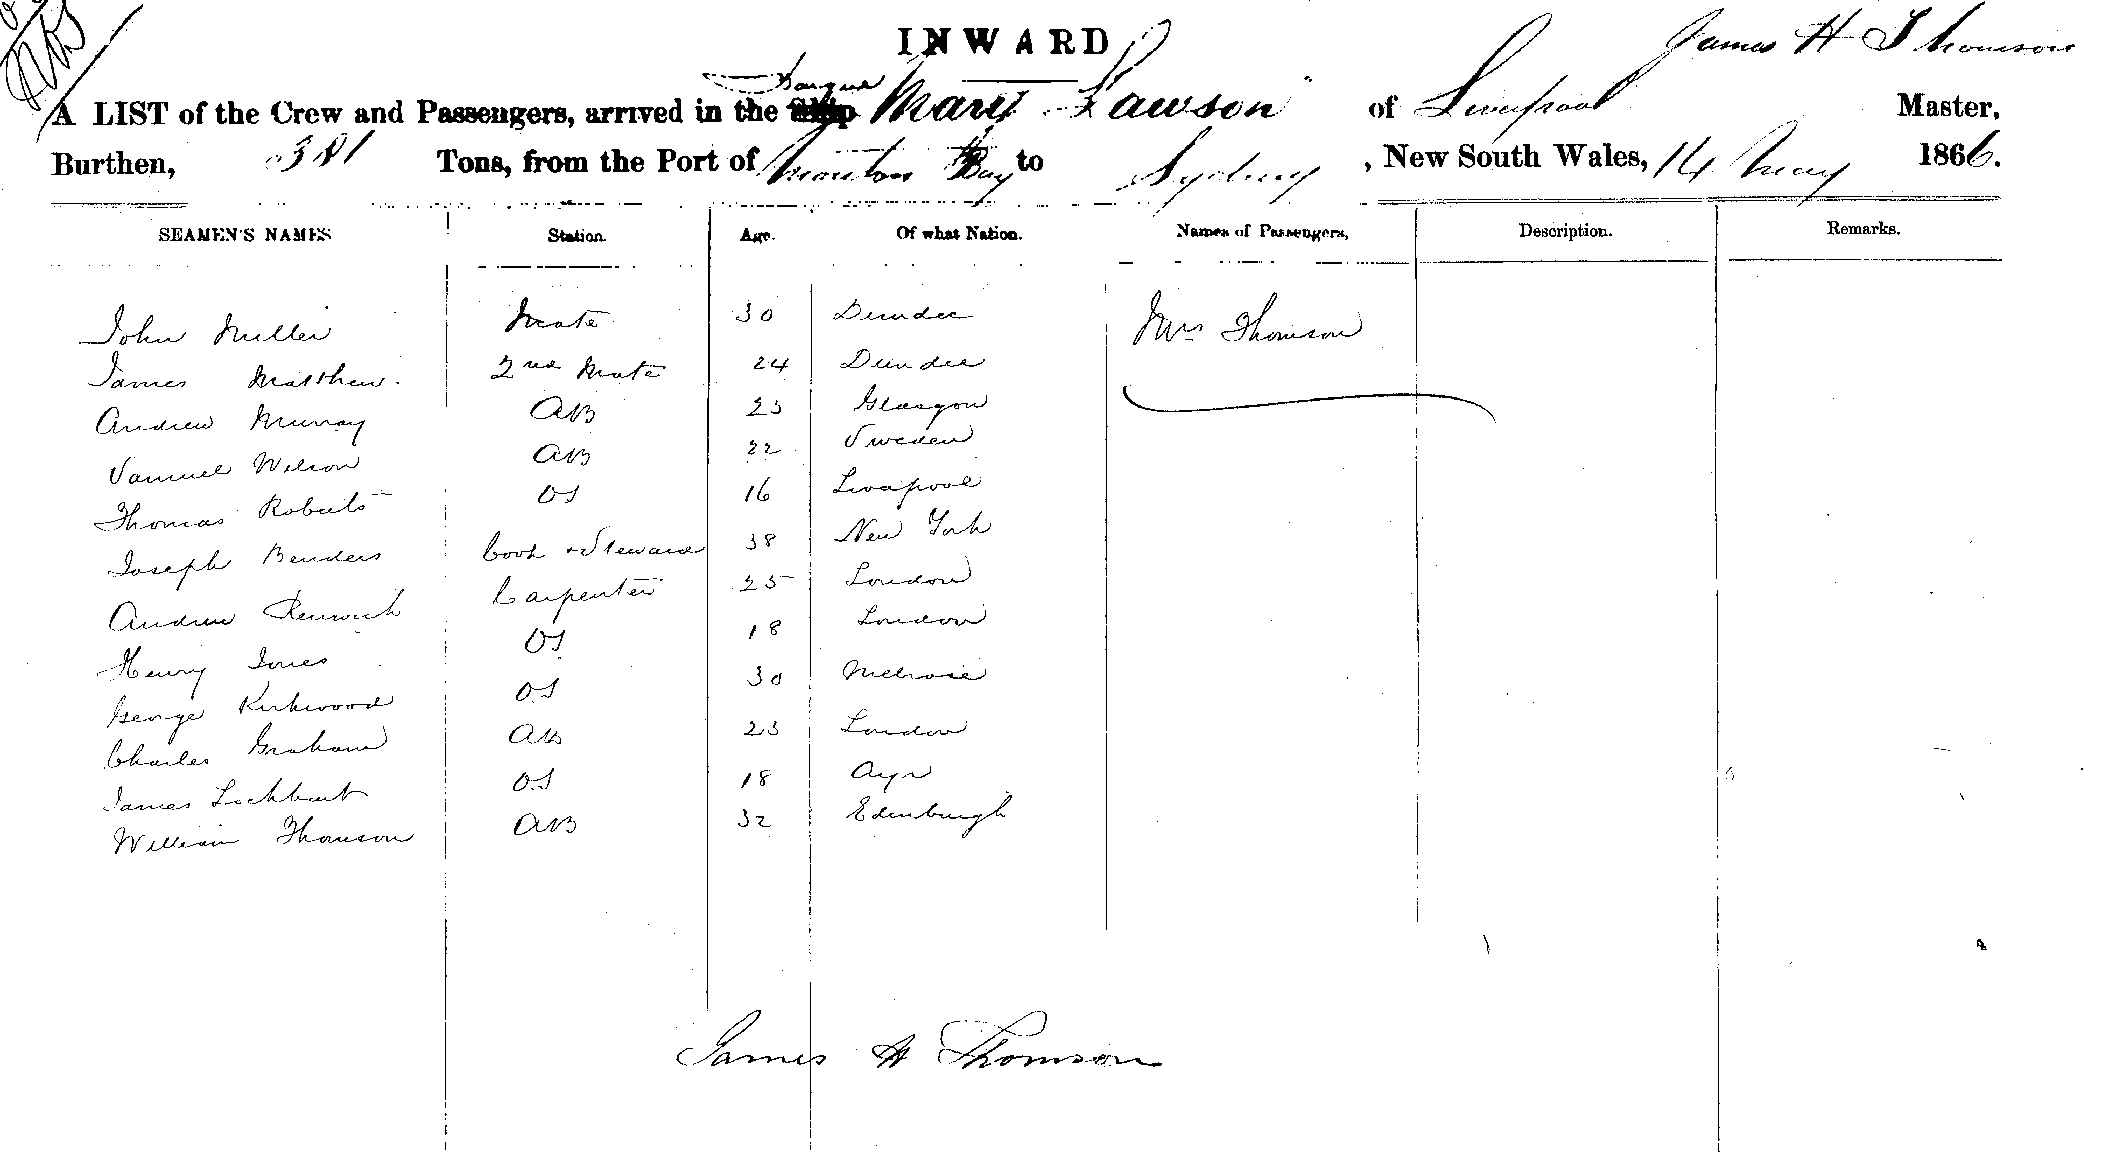 INWARD
James H Thomson
A LIST of the Crew and Passengers, arrived in the Barque Mary Lawson of Liverpool Master,
Burthen, Tons, from the Port of Moreton Bay to Sydney, New South Wales, 14 May 1866.
SEAMEN'S NAMES Station. Age. Of what Nation. Names of Passengers, Description. Remarks.
John Miller Mate 30 Dundee Mrs Thomson
James Matthew. 2nd Mate 24 Dundee
Andrew Murray AB 25 Glasgow
Samuel Wilson AB 22 Sweden
Thomas Roberts OS 16 Liverpool
Joseph Benders Cook & Steward 38 New York
Andrew Renwick Carpenter 25 London
Henry Jones OS 18 London
George Kirkwood OS 30 Melrose
Charles Graham AB 23 London
James Lockhart OS 18 Ayr
William Thomson AB 32 Edinburgh
James H Thomson